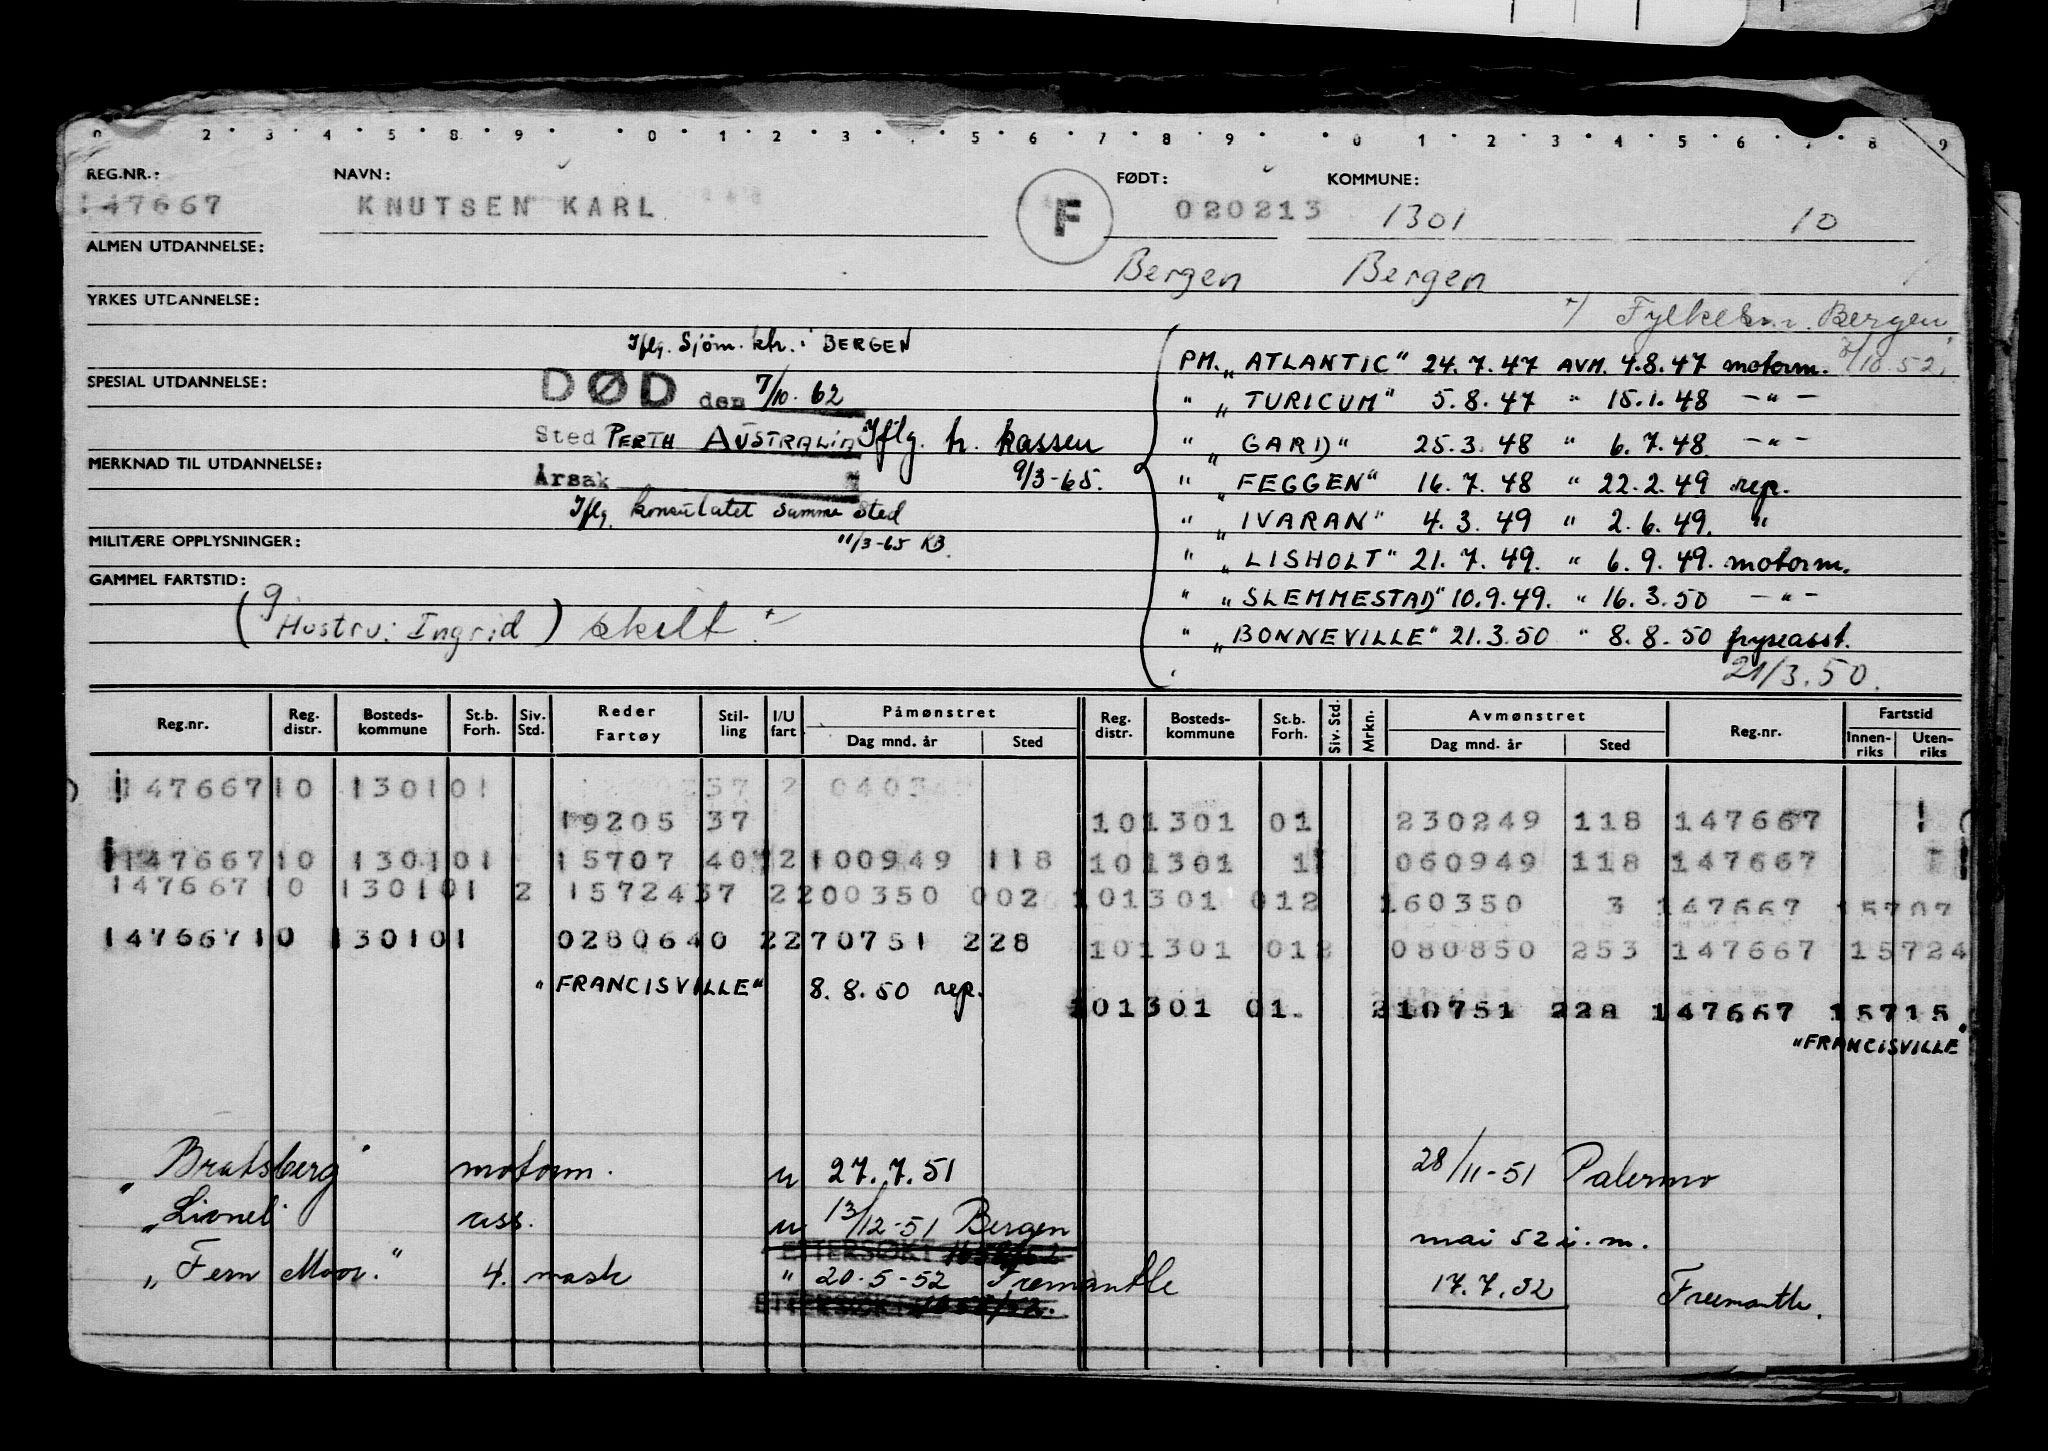 REG.NR.: NAVN: FØDT: KOMMUNE:
147667 KNUTSEN KARL F 020213 1301 10
ALMEN UTDANNELSE: Bergen Bergen
YRKES UTDANNELSE: Fylkesm. Bergen
Iflg. Sjöm. ktr. i BERGEN
PM. „ATLANTIC" 24.7.47 AVM. 4.8.47 motorm. /10.52.
SPESIAL UTDANNELSE: DØD den 7/10.62
" „TURICUM" 5.8.47 " 15.1.48 -"-
Sted PERTH AUSTRALIA Iflg. tr. kassen
" „GARD" 25.3.48 " 6.7.48 -"-
MERKNAD TIL UTDANNELSE: Årsak 9/3-65.
" „FEGGEN" 16.7.48 " 22.2.49 rep.
Iflg. konsulatet samme sted
" „IVARAN" 4.3.49 " 2.6.49. "
MILITÆRE OPPLYSNINGER: 11/3-65 KB.
" „LISHOLT" 21.7.49. " 6.9.49. motorm.
GAMMEL FARTSTID:
" „SLEMMESTAD" 10.9.49. " 16.3.50 -"-
(g Hustru: Ingrid) skilt
" „BONNEVILLE" 21.3.50 " 8.8.50 fryseasst.
21/3.50.
Reg.nr. Reg. distr. Bosteds-kommune St.b. Forh. Siv. Std. Reder Fartøy Stil-ling I/U fart Påmønstret Dag mnd. år Sted Reg. distr. Bosteds-kommune St.b. Forh. Siv. Std. Mrkn. Avmønstret Dag mnd. år Sted Reg.nr. Fartstid Innen-riks Uten-riks
147667 10 1301 01 37 2
19205 37 10 1301 01 230249 118 147667
147667 10 1301 01 15707 40 2 100949 118 10 1301 1 060949 118 147667
147667 10 1301 01 2 15724 37 2 200350 002 10 1301 012 160350 3 147667 15707
147667 10 1301 01 02806 40 2 270751 228 10 1301 012 080850 253 147667 15724
„FRANCISVILLE" 8.8.50 rep.
10 1301 01. 210751 228 147667 15715
„FRANCISVILLE"
„Bratsberg" motorm. u 27.7.51 28/11-51 Palermo
„Lionel" ass. u 13/12-51 Bergen mai 52 i.m.
ETTERSØKT
„Fern Moor." 4. mask " 20-5-52 Fremantle 17.7.52 Freemantle.
ETTERSØKT